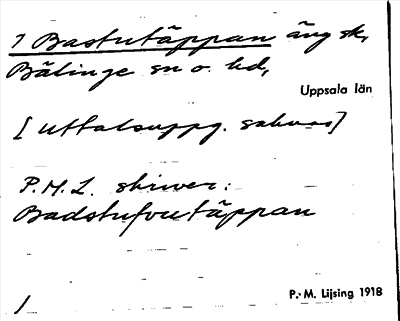 1 Bastutäppan äng sk,
Bälinge sn o. hd,
Uppsala län
[uttalsuppg. saknas]
P.M.L. skriver:
Badstufvutäppan
P. M. Lijsing 1918